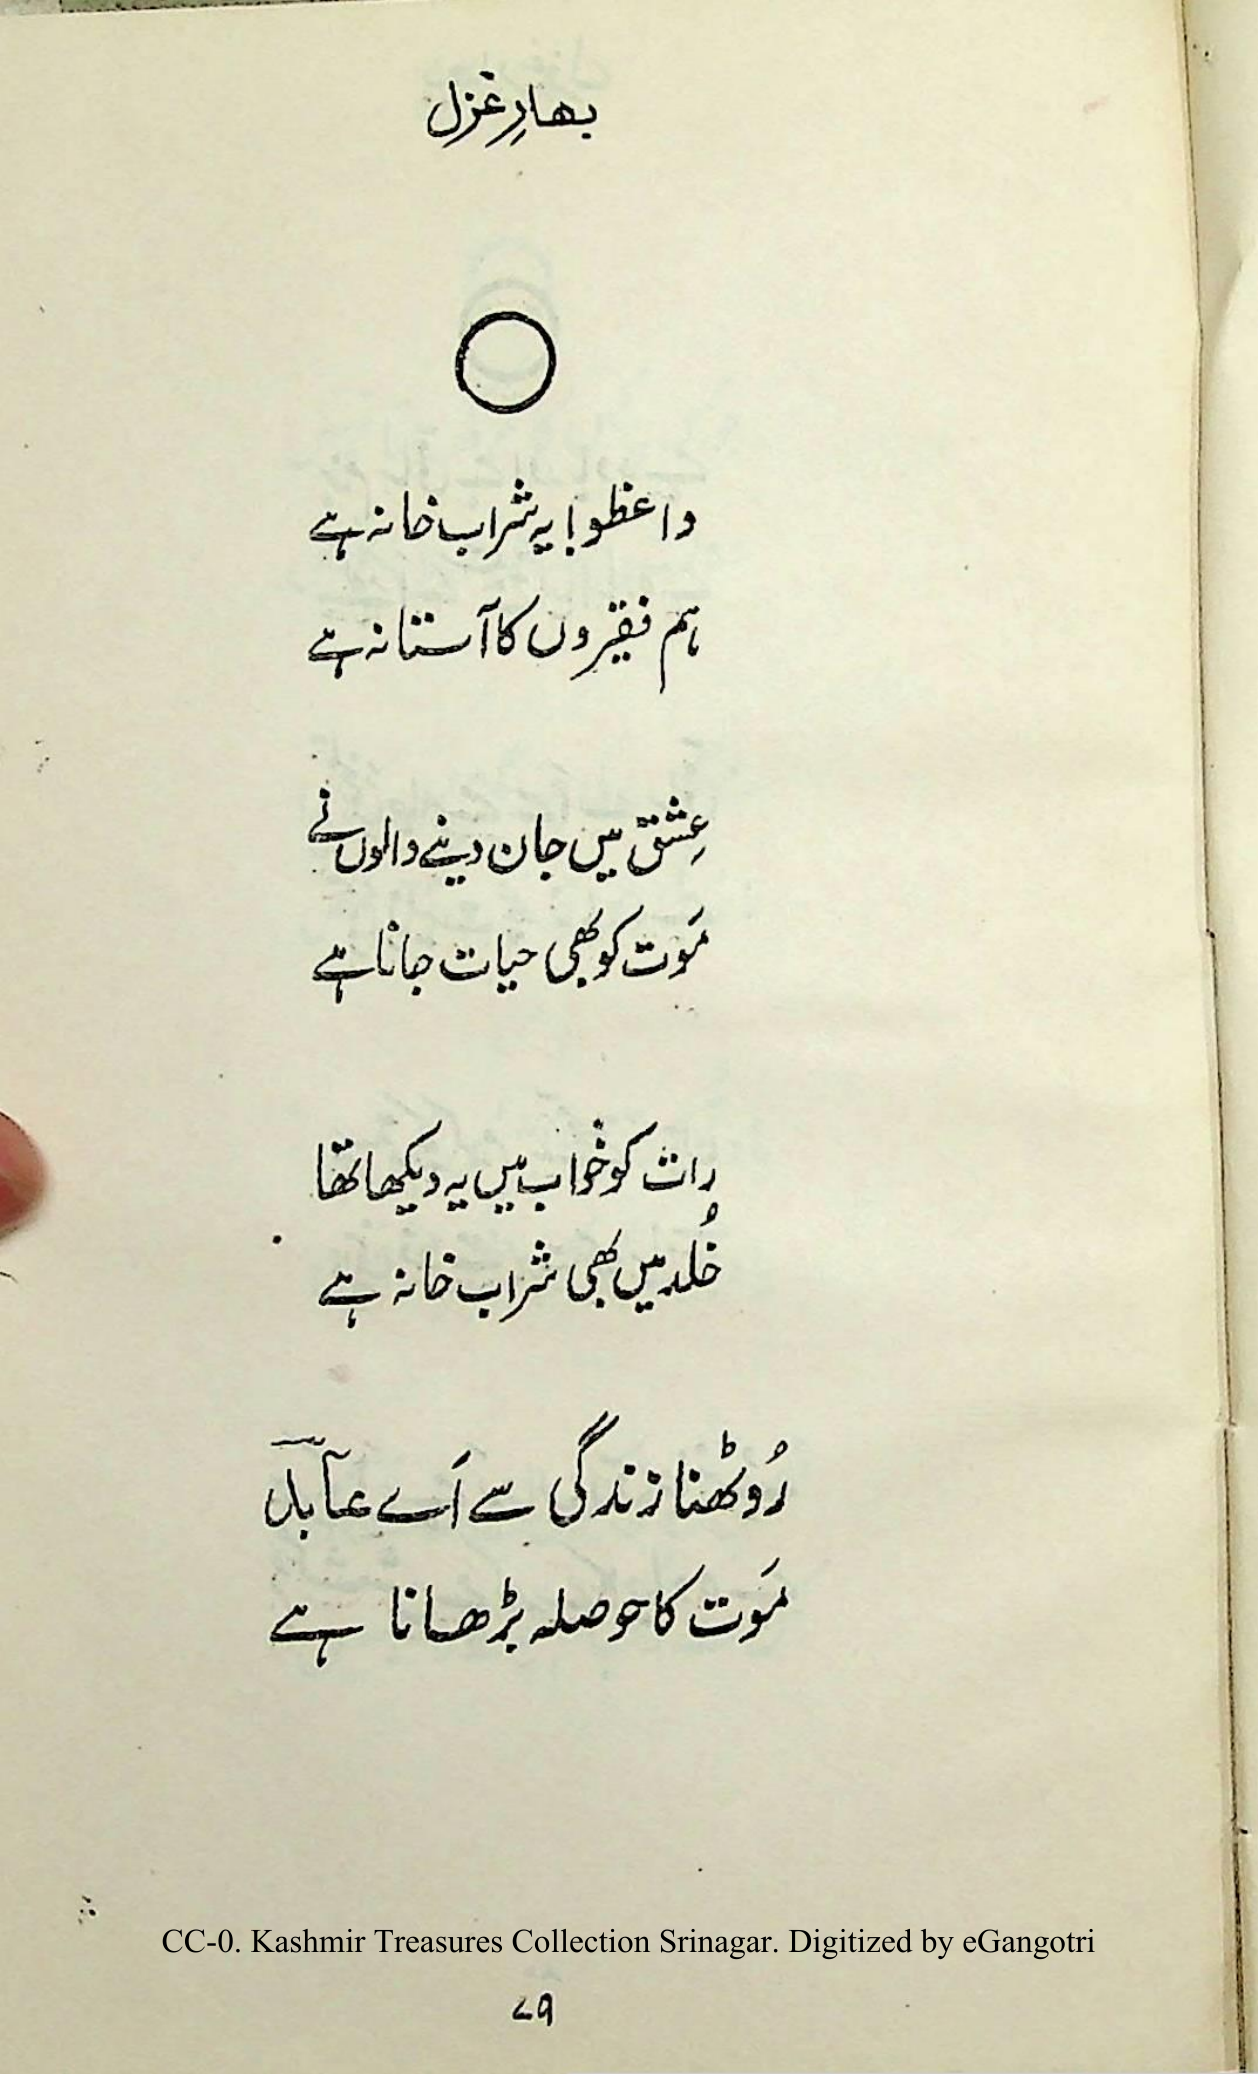 بھارِ غزل
واعظو! یہ شراب خانہ ہے
ہم فقیروں کا آستانہ ہے
عِشق میں جان دینے والوں نے
مَوت کو بھی حیات جانا ہے
رات کو خواب میں یہ دیکھا تھا
خُلد میں بھی شراب خانہ ہے
رُوٹھنا زندگی سے اَے عابد
مَوت کا حوصلہ بڑھانا ہے
CC-0. Kashmir Treasures Collection Srinagar. Digitized by eGangotri
۷۹